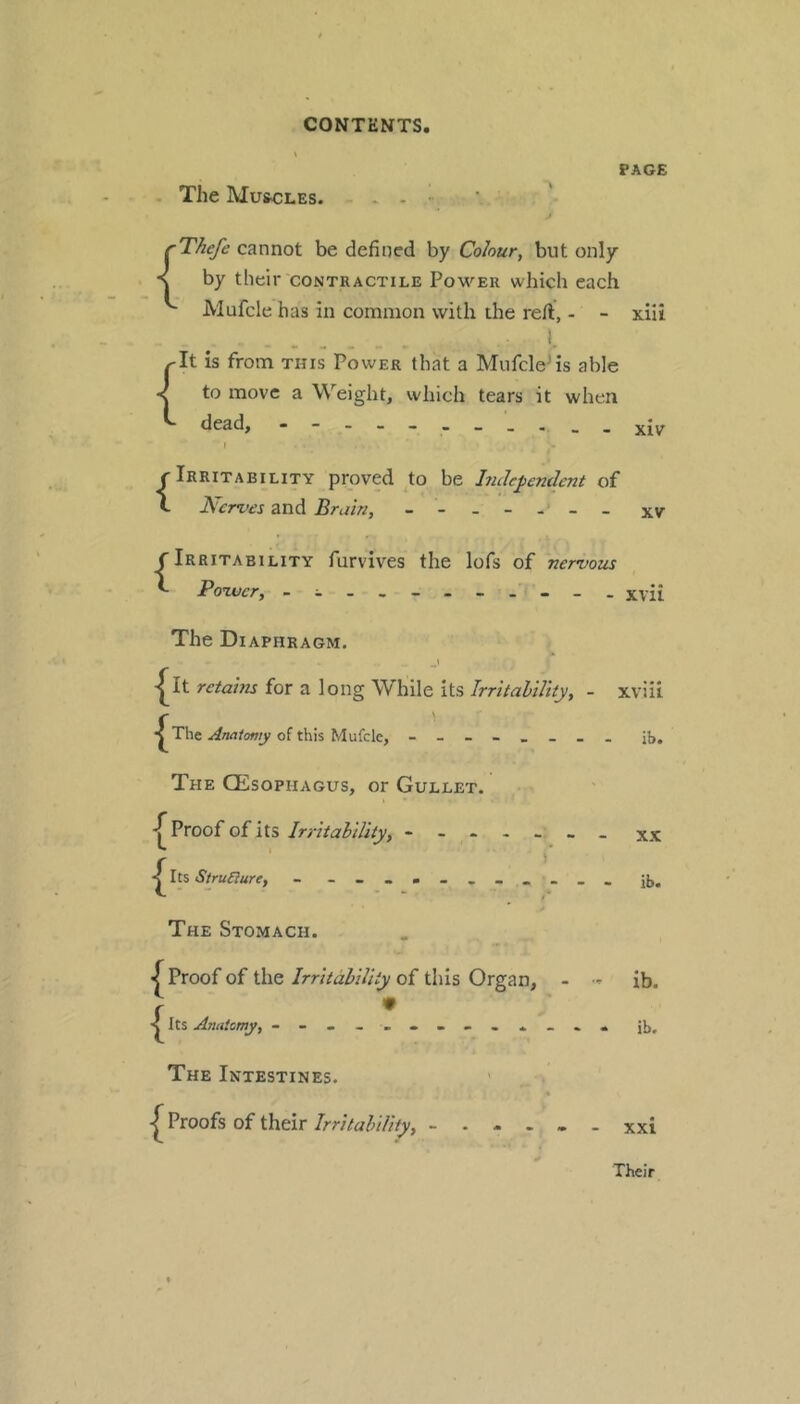 CONTENTS.
PAGE
The Muscles.
Thefe cannot be defined by Colour, but only
by their contractile Power which each
Mufcle has in common with the reft, - - xiii
It is from this Power that a Mufcle is able
to move a Weight, which tears it when
dead, - - - - - - - - - - - - xiv
Irritability proved to be Independent of
Nerves and Brain, - - - - - - - xv
Irritability furvives the lofs of nervous
Power, - - - - - - - - - - - xvii
The Diaphragm.
It retains for a long While its Irritability, - xviii
The Anatomy of this Mufcle, - - - - - - - - ib.
The Œsophagus, or Gullet.
Proof of its Irritability, - - - - - - - xx
Its Structure, - - - - - - - - - - - - - ib.
The Stomach.
Proof of the Irritability of this Organ, - - ib.
Its Anatomy, - - - - - - - - - - - - - - ib.
The Intestines.
Proofs of their Irritability, - - - - - - xxi
Their